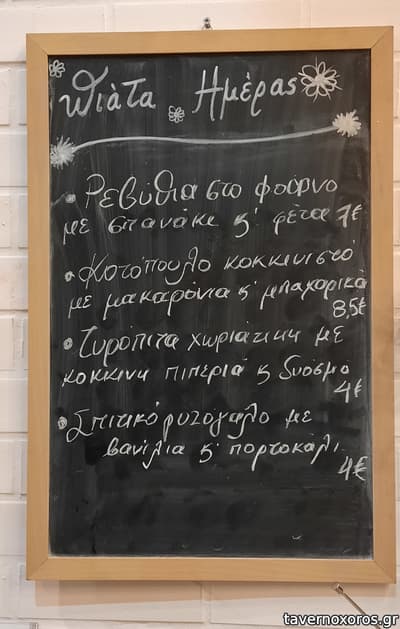 Πιάτα Ημέρας
• Ρεβύθια στο φούρνο
με σπανάκι ς' φέτα 7€
• Κοτόπουλο κοκκινιστό
με μακαρόνια ς' μπαχαρικά
8,5€
• Τυρόπιτα χωριάτικη με
κοκκινη πιπεριά ς δυόσμο
4€
• Σπιτικό ρυζόγαλο με
βανίλια ς' πορτοκάλι.
4€
tavernoxoros.gr